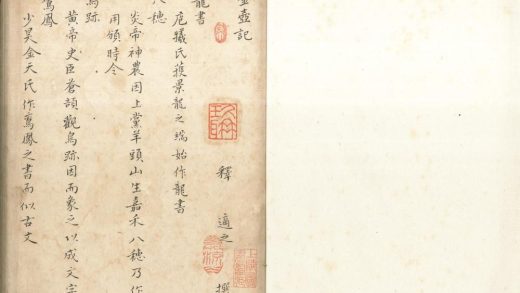 金壺記
釋 適之 撰
龍書
庖犧氏獲景龍之瑞始作龍書
八穗
炎帝神農因上黨羊頭山生嘉禾八穗乃作
用頒時令
鳥跡
黃帝史臣蒼頡觀鳥跡因而象之以成文字
鸞鳳
少昊金天氏作鸞鳳之書而似古文